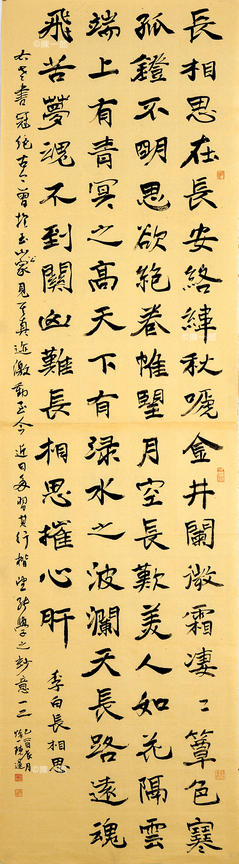 長相思在長安絡緯秋嗁金井闌微霜凄〻簟色寒
孤鐙不明思欲絕卷帷望月空長歎美人如花隔雲
端上有青冥之高天下有淥水之波瀾天長路遠魂
飛苦夢魂不到關山難長相思摧心肝
李白長相思
書冠絕古今曾於家見其真迹激動至今近日每習其行楷望能學之妙意一二
乙酉